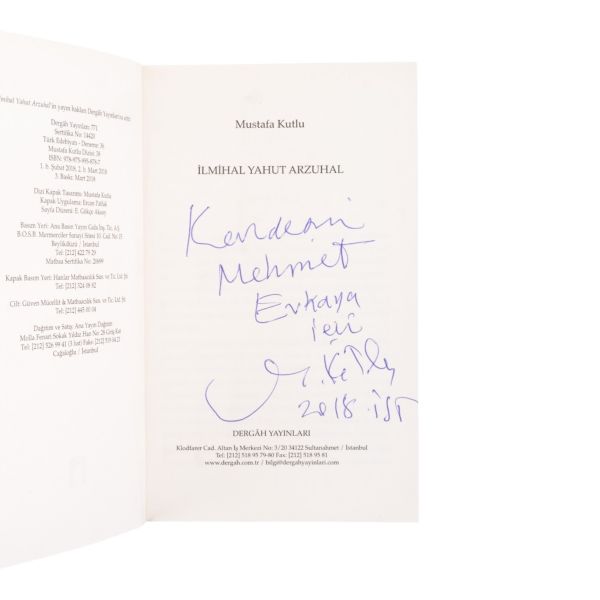 İlmihal Yahut Arzuhal'in yayın hakları Dergâh Yayınları'na aittir.
Dergâh Yayınları 771
Sertifika No: 14420
Türk Edebiyatı - Deneme 36
Mustafa Kutlu Dizisi 38
ISBN: 978-975-995-878-7
1. b. Şubat 2018, 2. b. Mart 2018
3. Baskı: Mart 2018
Dizi Kapak Tasarımı: Mustafa Kutlu
Kapak Uygulama: Ercan Patlak
Sayfa Düzeni: E. Gökçe Aksoy
Basım Yeri: Ana Basın Yayın Gıda İnş. Tic. A.Ş.
B.O.S.B. Mermerciler Sanayi Sitesi 10. Cad. No: 15
Beylikdüzü / İstanbul
Tel: [212] 422 79 29
Matbaa Sertifika No: 20699
Kapak Basım Yeri: Hanlar Matbaacılık San. ve Tic. Ltd. Şti.
Tel: [212] 324 08 82
Cilt: Güven Mücellit & Matbaacılık San. ve Tic. Ltd. Şti.
Tel: [212] 445 00 04
Dağıtım ve Satış: Ana Yayın Dağıtım
Molla Fenari Sokak Yıldız Han No: 28 Giriş Kat
Tel: [212] 526 99 41 (3 hat) Faks: [212] 519 04 21
Cağaloğlu / İstanbul
Mustafa Kutlu
İLMİHAL YAHUT ARZUHAL
Kardeşim
Mehmet
Evkaya
için
M. Kutlu
2018 · İST
DERGÂH YAYINLARI
Klodfarer Cad. Altan İş Merkezi No: 3/20 34122 Sultanahmet / İstanbul
Tel: [212] 518 95 79-80 Fax: [212] 518 95 81
www.dergah.com.tr / bilgi@dergahyayinlari.com